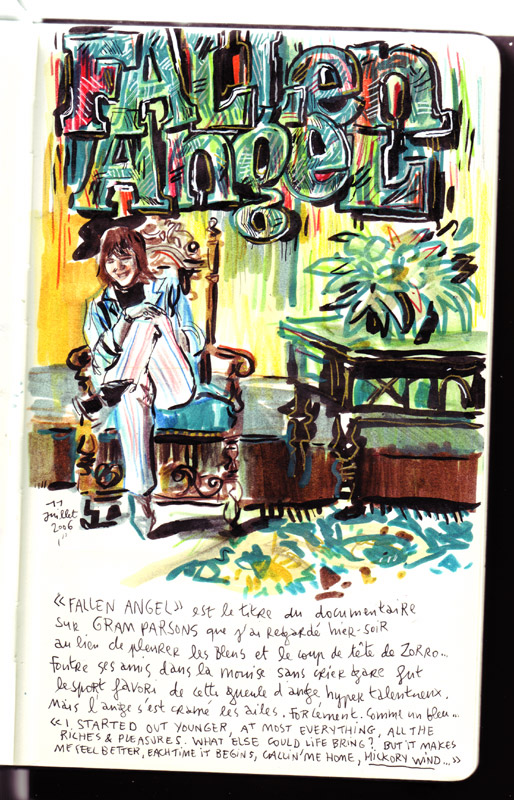 FALLen
AngeL
11
juillet
2006
«FALLEN ANGEL» est le titre du documentaire
sur GRAM PARSONS que j'ai regardé hier-soir
au lieu de pleurer les Bleus et le coup de tête de ZORRO...
Foutre ses amis dans la mouise sans crier gare fut
le sport favori de cette gueule d'ange hyper talentueux.
Mais l'ange s'est cramé les ailes. Forcément. Comme un bleu...
«I STARTED OUT YOUNGER, AT MOST EVERYTHING, ALL THE
RICHES & PLEASURES. WHAT ELSE COULD LIFE BRING? BUT IT MAKES
ME FEEL BETTER, EACH TIME IT BEGINS, CALLIN' ME HOME, HICKORY WIND...»